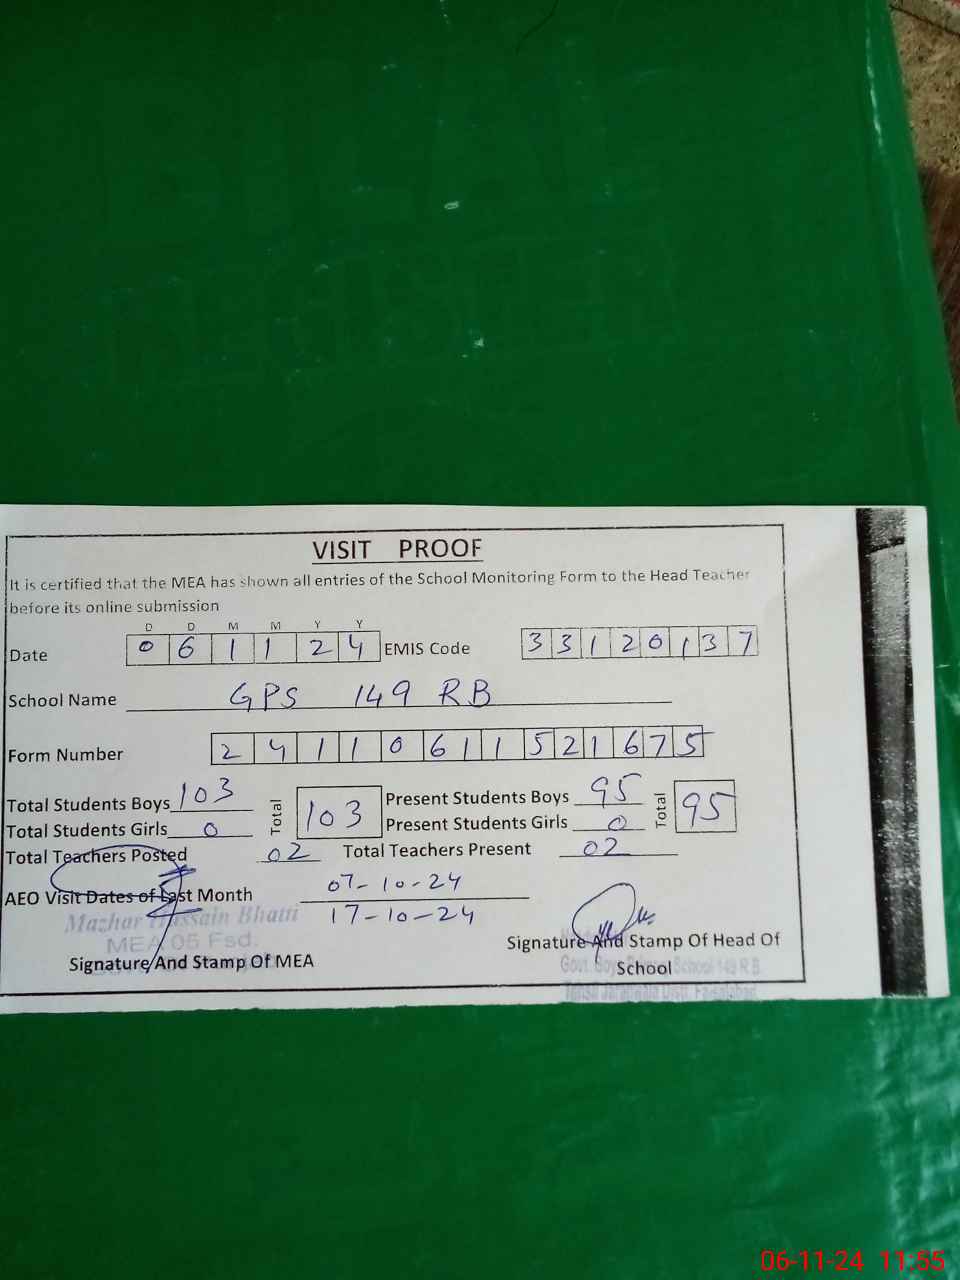 VISIT PROOF
It is certified that the MEA has shown all entries of the School Monitoring Form to the Head Teacher
before its online submission
D D M M Y Y
Date 0 6 1 1 2 4 EMIS Code 3 3 1 2 0 1 3 7
School Name GPS 149 RB
Form Number 2 4 1 1 0 6 1 1 5 2 1 6 7 5
Total Students Boys 103 Total 103 Present Students Boys 95 Total 95
Total Students Girls 0 Present Students Girls 0
Total Teachers Posted 02 Total Teachers Present 02
AEO Visit Dates of Last Month 07-10-24
17-10-24
Mazhar Hussain Bhatti
MEA 05 Fsd.
Signature And Stamp Of MEA
Signature And Stamp Of Head Of
School
Govt. Boys Primary School 149 R.B
Tehsil Jaranwala Distt. Faisalabad
06-11-24 11:55